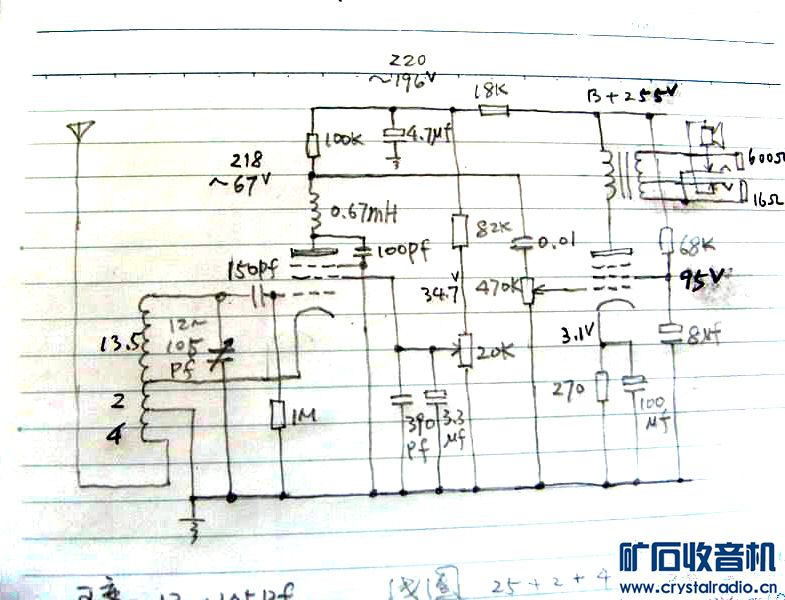 220
~196V
18K
B+255V
100K
4.7μf
600Ω
218
~67V
16Ω
0.67mH
82K
0.01
68K
100pf
150pf
34.7V
470K
95V
13.5
12~
105
pf
3.1V
8μf
20K
2
4
1M
390
pf
3.3
μf
270
100
μf
25+2+4
矿石收音机
www.crystalradio.cn